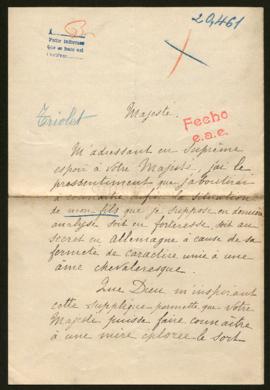 29,461
A
Petit indiennes
Triolet
Majesté.
Fecho
e.a.e.
M'adressant en Suprême
espoir à Votre Majesté, j'ai le
pressentiment que j'aboutirai
à connaître enfin la situation
de mon fils que je suppose en dernière
analyse soit en forteresse, soit au
secret en Allemagne à cause de sa
fermeté de caractère unie à une
âme chevaleresque.
Que Dieu m'inspirant
cette supplique permette que Votre
Majesté puisse faire connaître
à une mère éplorée le sort